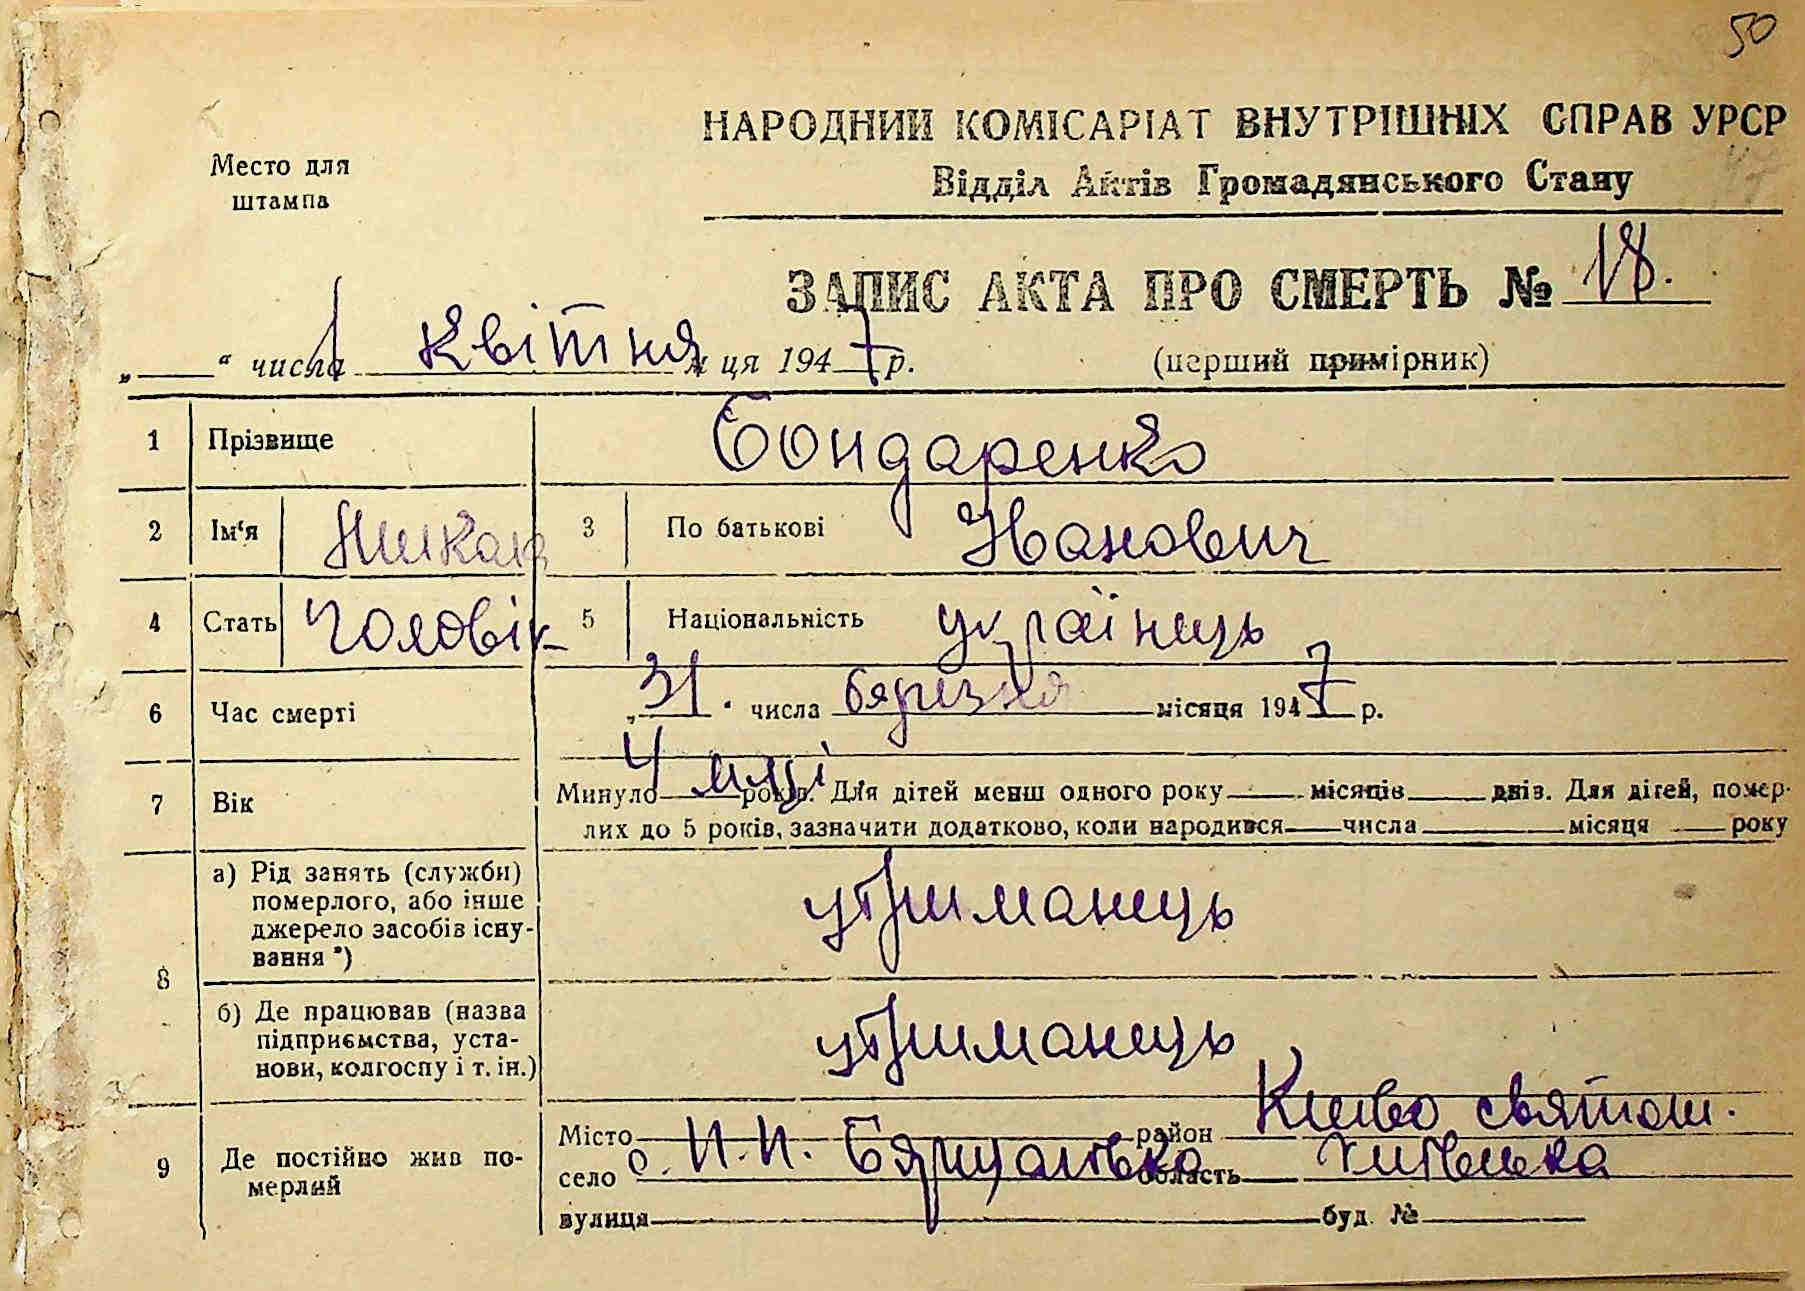 50
НАРОДНИЙ КОМІСАРІАТ ВНУТРІШНІХ СПРАВ УРСР
Место для штампа
Відділ Актів Громадянського Стану
ЗАПИС АКТА ПРО СМЕРТЬ № 18.
„ “ числа 1 квітня м ця 1947 р.
(перший примірник)
1 Прізвище Бондаренко
2 Ім‘я Микола 3 По батькові Іванович
4 Стать Чоловік 5 Національність українець
6 Час смерті „31. числа березня місяця 1947 р.
7 Вік Минуло 4 м-ці років. Для дітей менш одного року місяців днів. Для дітей, помер-
лих до 5 років, зазначити додатково, коли народився числа місяця року
8 а) Рід занять (служби) померлого, або інше джерело засобів існу-вання *) утриманець
б) Де працював (назва підприємства, уста-нови, колгоспу і т. ін.) утриманець
9 Де постійно жив по-мерлий
Місто район Києво святош.
село с. П. П. Борщагівка область Київська
вулиця буд. №